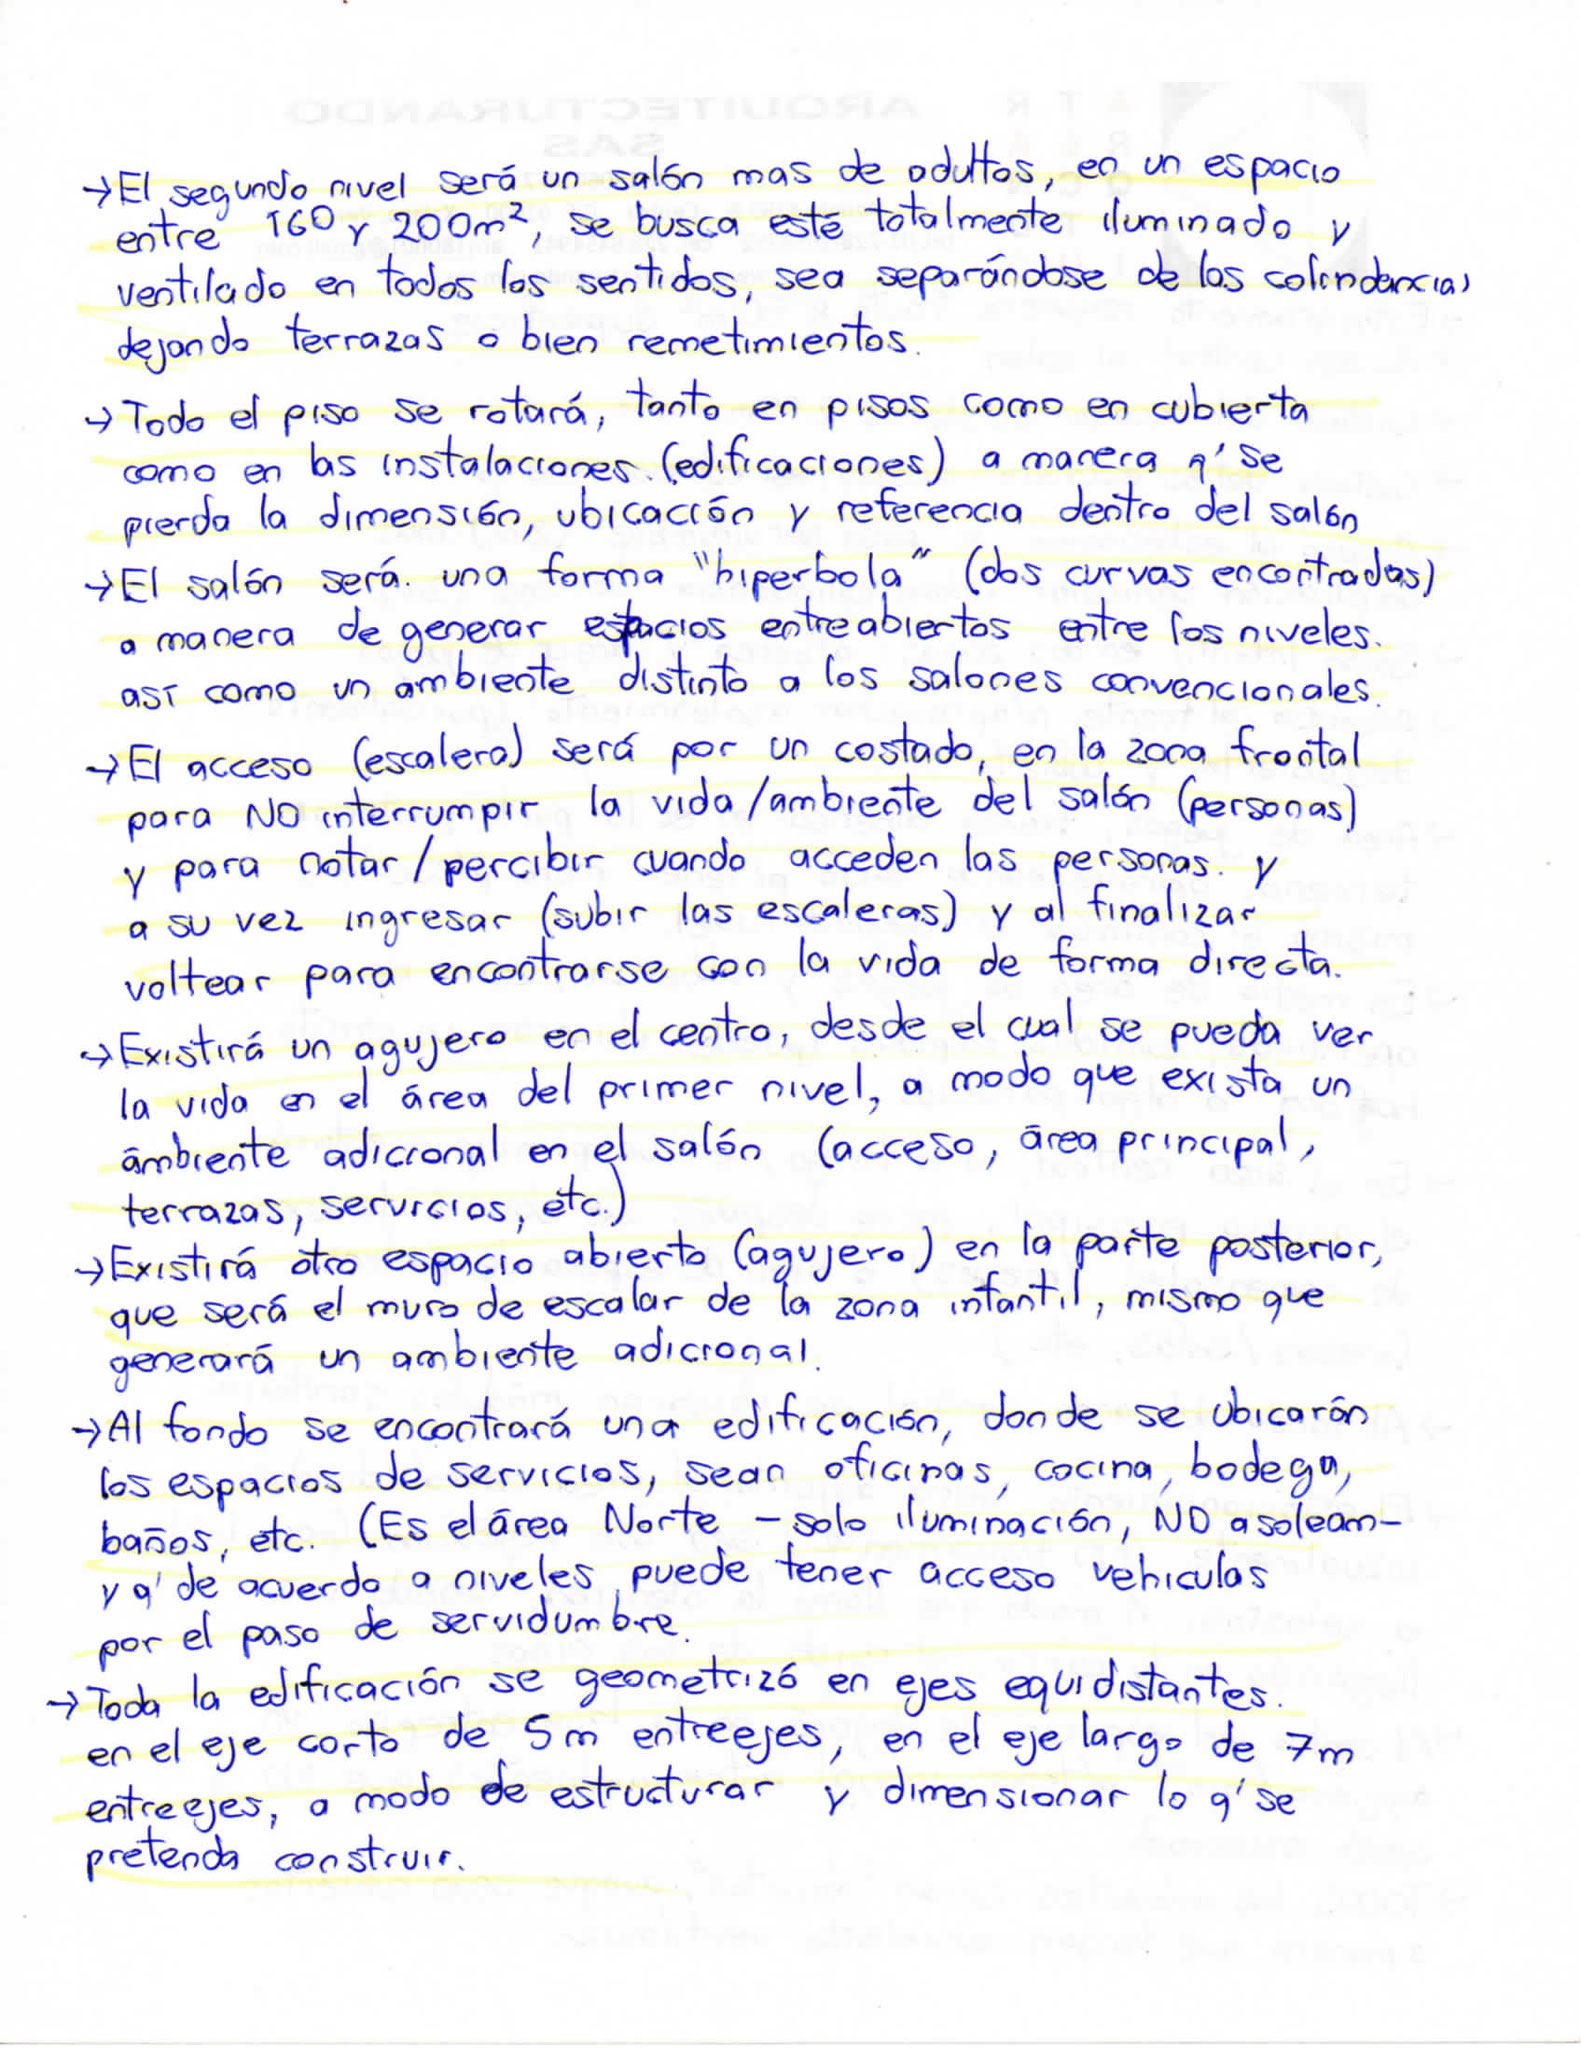 → El segundo nivel será un salón mas de adultos, en un espacio
entre 160 y 200m², se busca esté totalmente iluminado y
ventilado en todos los sentidos, sea separándose de las colindancias
dejando terrazas o bien remetimientos.
→ Todo el piso se rotará, tanto en pisos como en cubierta
como en las instalaciones. (edificaciones) a manera q' se
pierda la dimensión, ubicación y referencia dentro del salón
→ El salón será. una forma "hiperbola" (dos curvas encontradas)
a manera de generar espacios entreabiertos entre los niveles.
así como un ambiente distinto a los salones convencionales.
→ El acceso (escalera) será por un costado, en la zona frontal
para NO interrumpir la vida/ambiente del salón (personas)
y para notar/percibir cuando acceden las personas. y
a su vez ingresar (subir las escaleras) y al finalizar
voltear para encontrarse con la vida de forma directa.
→ Existirá un agujero en el centro, desde el cual se pueda ver
la vida en el área del primer nivel, a modo que exista un
ámbiente adicional en el salón (acceso, área principal,
terrazas, servicios, etc.)
→ Existirá otro espacio abierto (agujero) en la parte posterior,
que será el muro de escalar de la zona infantil, mismo que
generará un ambiente adicional.
→ Al fondo se encontrará una edificación, donde se ubicarán
los espacios de servicios, sean oficinas, cocina, bodega,
baños, etc. (Es el área Norte - solo iluminación, NO asoleam-
y q' de acuerdo a niveles puede tener acceso vehiculas
por el paso de servidumbre.
→ Toda la edificación se geometrizó en ejes equidistantes.
en el eje corto de 5m entreejes, en el eje largo de 7m
entreejes, a modo de estructurar y dimensionar lo q' se
pretenda construir.